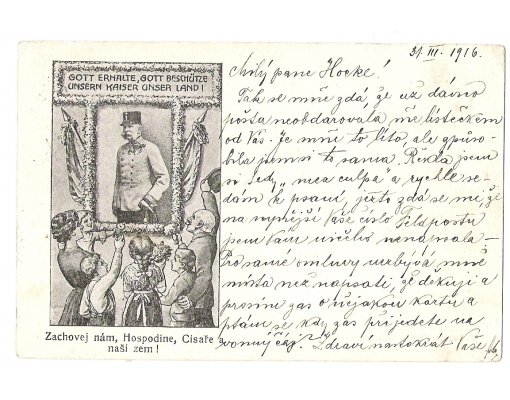 GOTT ERHALTE, GOTT BESCHÜTZE
UNSERN KAISER UNSER LAND!
Zachovej nám, Hospodine, Císaře a
naší zem!
31. III. 1916.
Milý pane Hocke!
Tak se mně zdá, že už dávno
pošta neobdarovala mě lístečkem
od Vás. Je mně to líto, ale způso-
bila jsem si to sama. Řekla jsem
si tedy „mea culpa" a rychle se-
dám k psaní, ježto zdá se mi, že
na nynější Vaše číslo Feldpostu
jsem Vám určitě nenapsala –
Pro samé omluvy nezbývá mně
místa než napsati, že děkuji a
prosím zas o nějakou kartu a
ptám se, kdy zas přijedete na
vonný čaj. Zdraví nastokrát Vaše